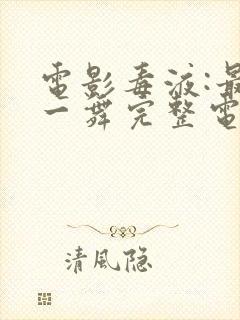 電影毒液:最
一舞完整電
清風隐